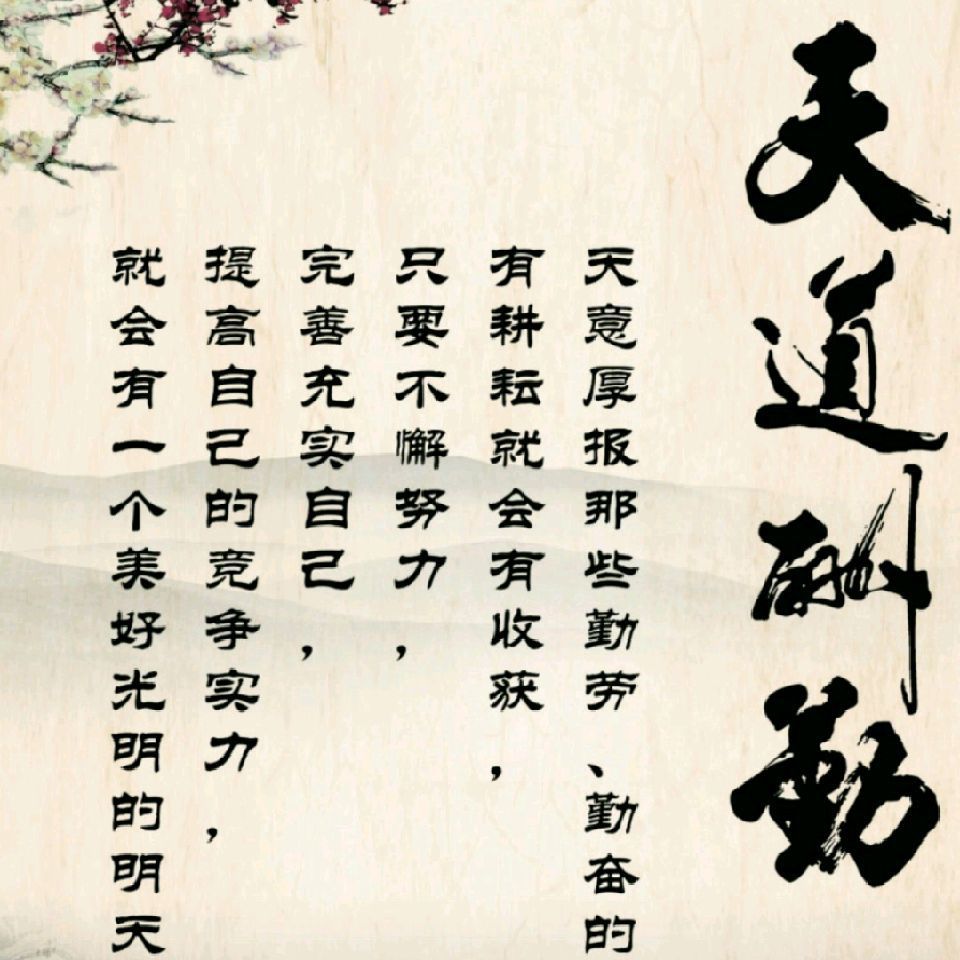 天道酬勤
天意厚报那些勤劳、勤奋的
有耕耘就会有收获，
只要不懈努力，
完善充实自己，
提高自己的竞争实力，
就会有一个美好光明的明天